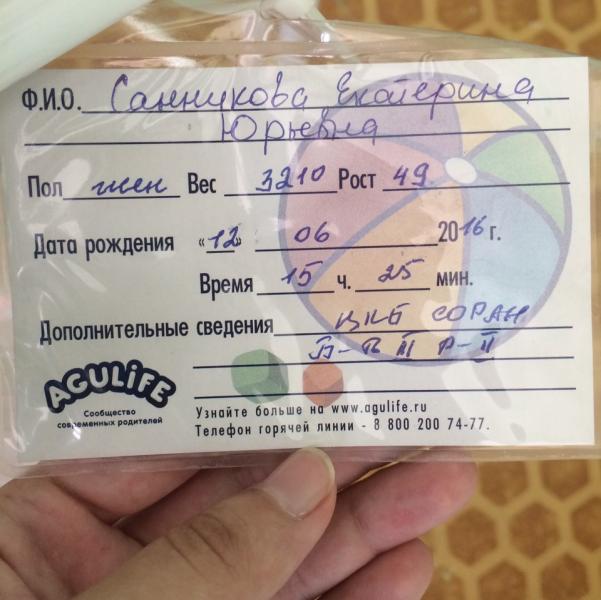 Ф.И.О. Санникова Екатерина
Юрьевна
Пол жен Вес 3210 Рост 49
Дата рождения «12» 06 2016 г.
Время 15 ч. 25 мин.
Дополнительные сведения ЦКБ СОРАН
Б-В III Р-II
AGULiFE
Сообщество
современных родителей
Узнайте больше на www.agulife.ru
Телефон горячей линии - 8 800 200 74-77.